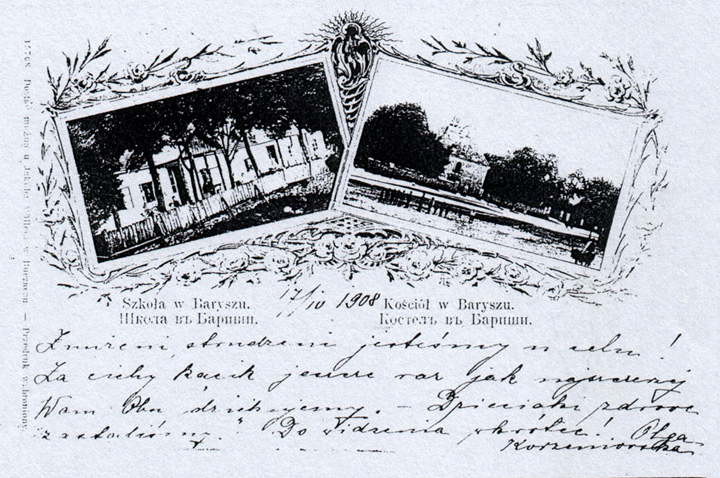 Szkoła w Baryszu.
Школа въ Бариши.
17/IV 1908
Kościół w Baryszu.
Костелъ въ Бариши.
Znużeni, strudzeni jesteśmy u celu!
Za cichy kącik jeszcze raz jak najszczerzej
Wam Obu dziękujemy. – Dzieciaki zdrowe
zastaliśmy." Do widzenia wkrótce! Olga
Korzeniowska
nabyć można u w – Przedruk wzbroniony.